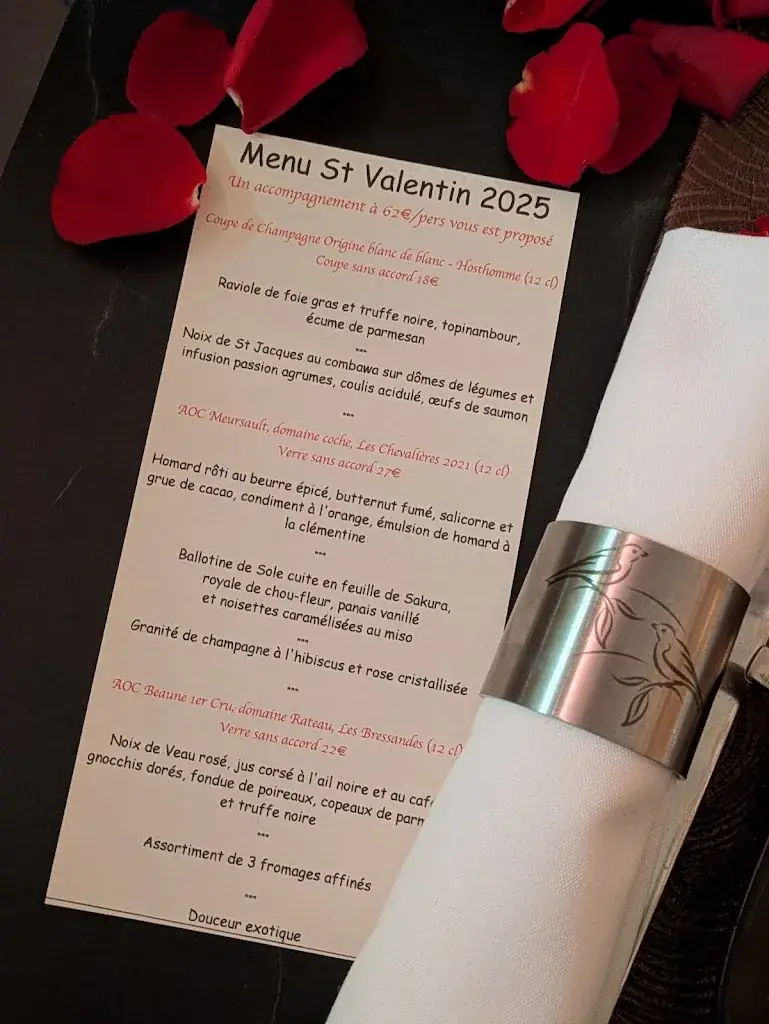 Menu St Valentin 2025
Un accompagnement à 62€/pers vous est proposé
Coupe de Champagne Origine blanc de blanc - Hosthomme (12 cl)
Coupe sans accord 18€
Raviole de foie gras et truffe noire, topinambour,
écume de parmesan
***
Noix de St Jacques au combawa sur dômes de légumes et
infusion passion agrumes, coulis acidulé, œufs de saumon
***
AOC Meursault, domaine coche, Les Chevalières 2021 (12 cl)
Verre sans accord 27€
Homard rôti au beurre épicé, butternut fumé, salicorne et
grue de cacao, condiment à l'orange, émulsion de homard à
la clémentine
***
Ballotine de Sole cuite en feuille de Sakura,
royale de chou-fleur, panais vanillé
et noisettes caramélisées au miso
***
Granité de champagne à l'hibiscus et rose cristallisée
***
AOC Beaune 1er Cru, domaine Rateau, Les Bressandes (12 cl)
Verre sans accord 22€
Noix de Veau rosé, jus corsé à l'ail noire et au
gnocchis dorés, fondue de poireaux, copeaux de
et truffe noire
***
Assortiment de 3 fromages affinés
***
Douceur exotique